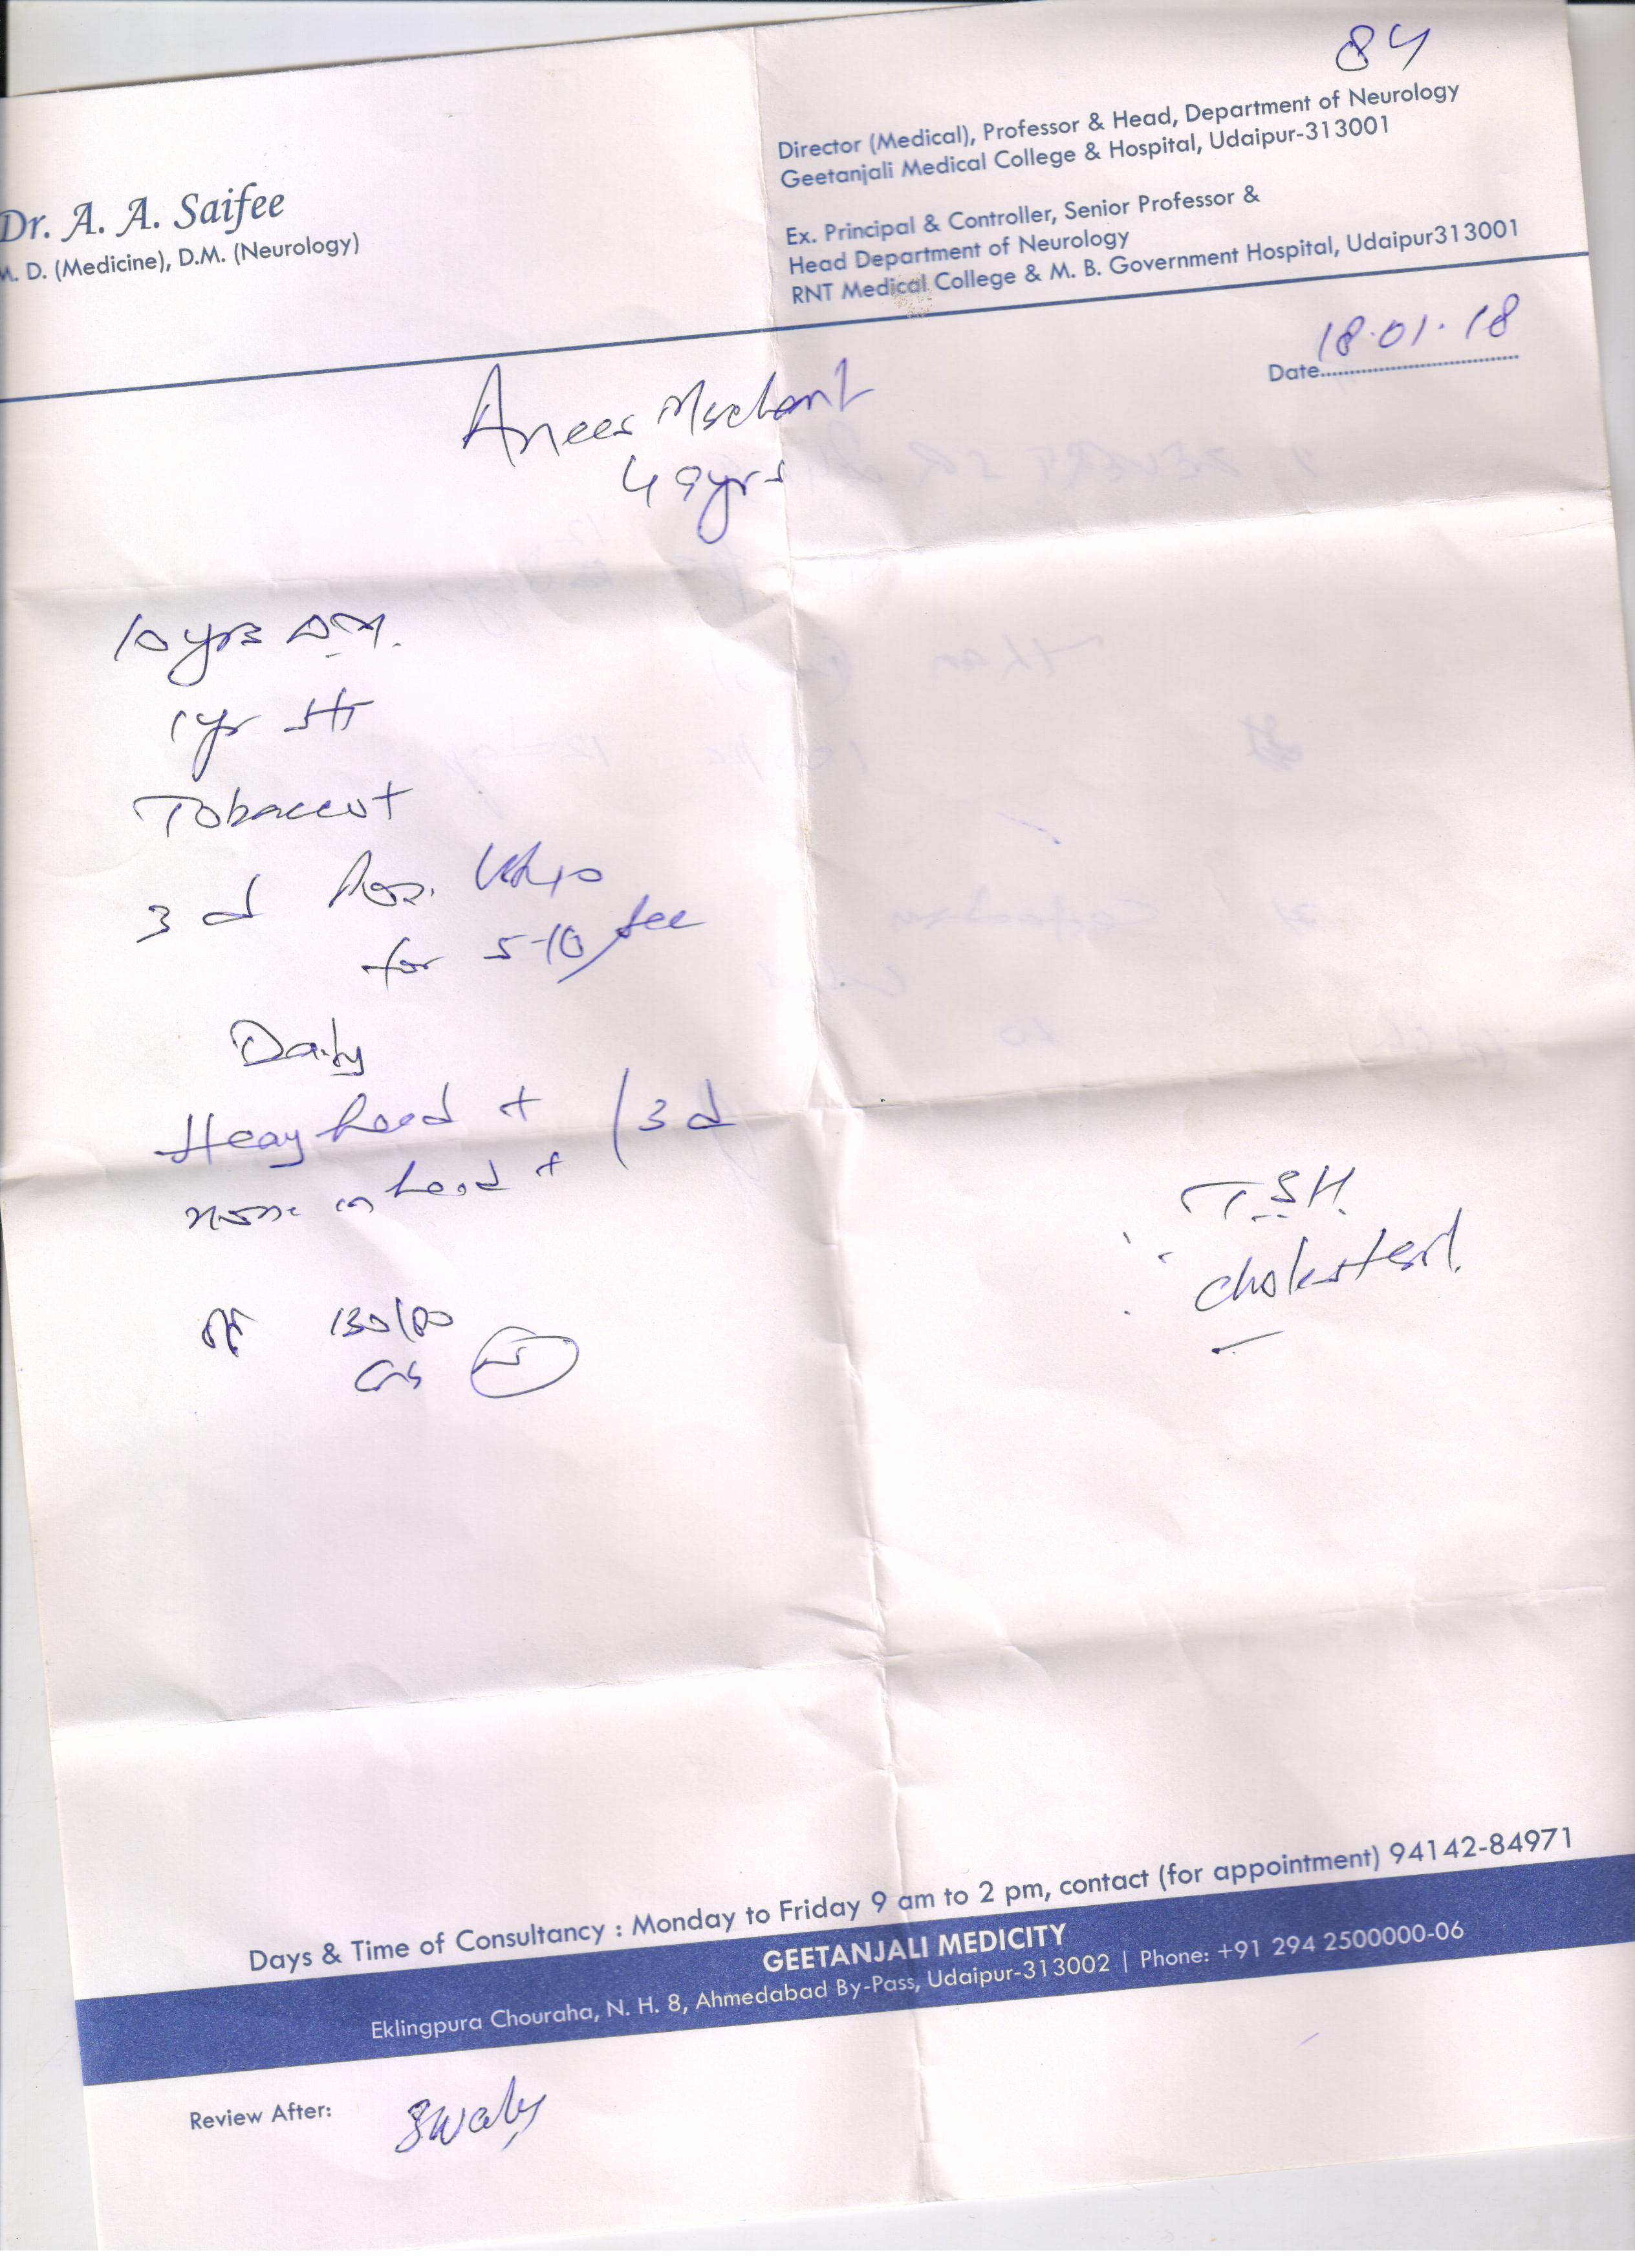 84
Dr. A. A. Saifee
M. D. (Medicine), D.M. (Neurology)
Director (Medical), Professor & Head, Department of Neurology
Geetanjali Medical College & Hospital, Udaipur-313001
Ex. Principal & Controller, Senior Professor &
Head Department of Neurology
RNT Medical College & M. B. Government Hospital, Udaipur313001
Date 18.01.18
Anees
49yrs
10 yrs DM.
1yr HT
Tobacco +
3 d
for 5-10 sec
Daily
Heavy head + / 3 d
in head +
130/80
TSH
cholesterol.
Days & Time of Consultancy : Monday to Friday 9 am to 2 pm, contact (for appointment) 94142-84971
GEETANJALI MEDICITY
Eklingpura Chouraha, N. H. 8, Ahmedabad By-Pass, Udaipur-313002 | Phone: +91 294 2500000-06
Review After: